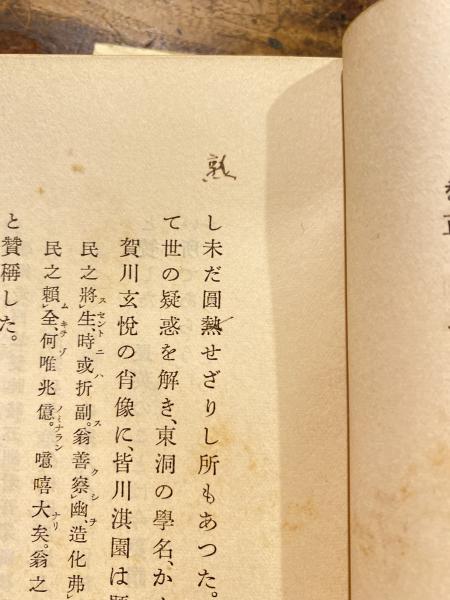 熟
し未だ圓熱せざりし所もあつた。
て世の疑惑を解き、東洞の學名、か
賀川玄悅の肖像に、皆川淇園は
民之將生、時或折副。翁善察幽、造化弗
民之賴全、何唯兆億。噫嘻大矣。翁之
と贊稱した。